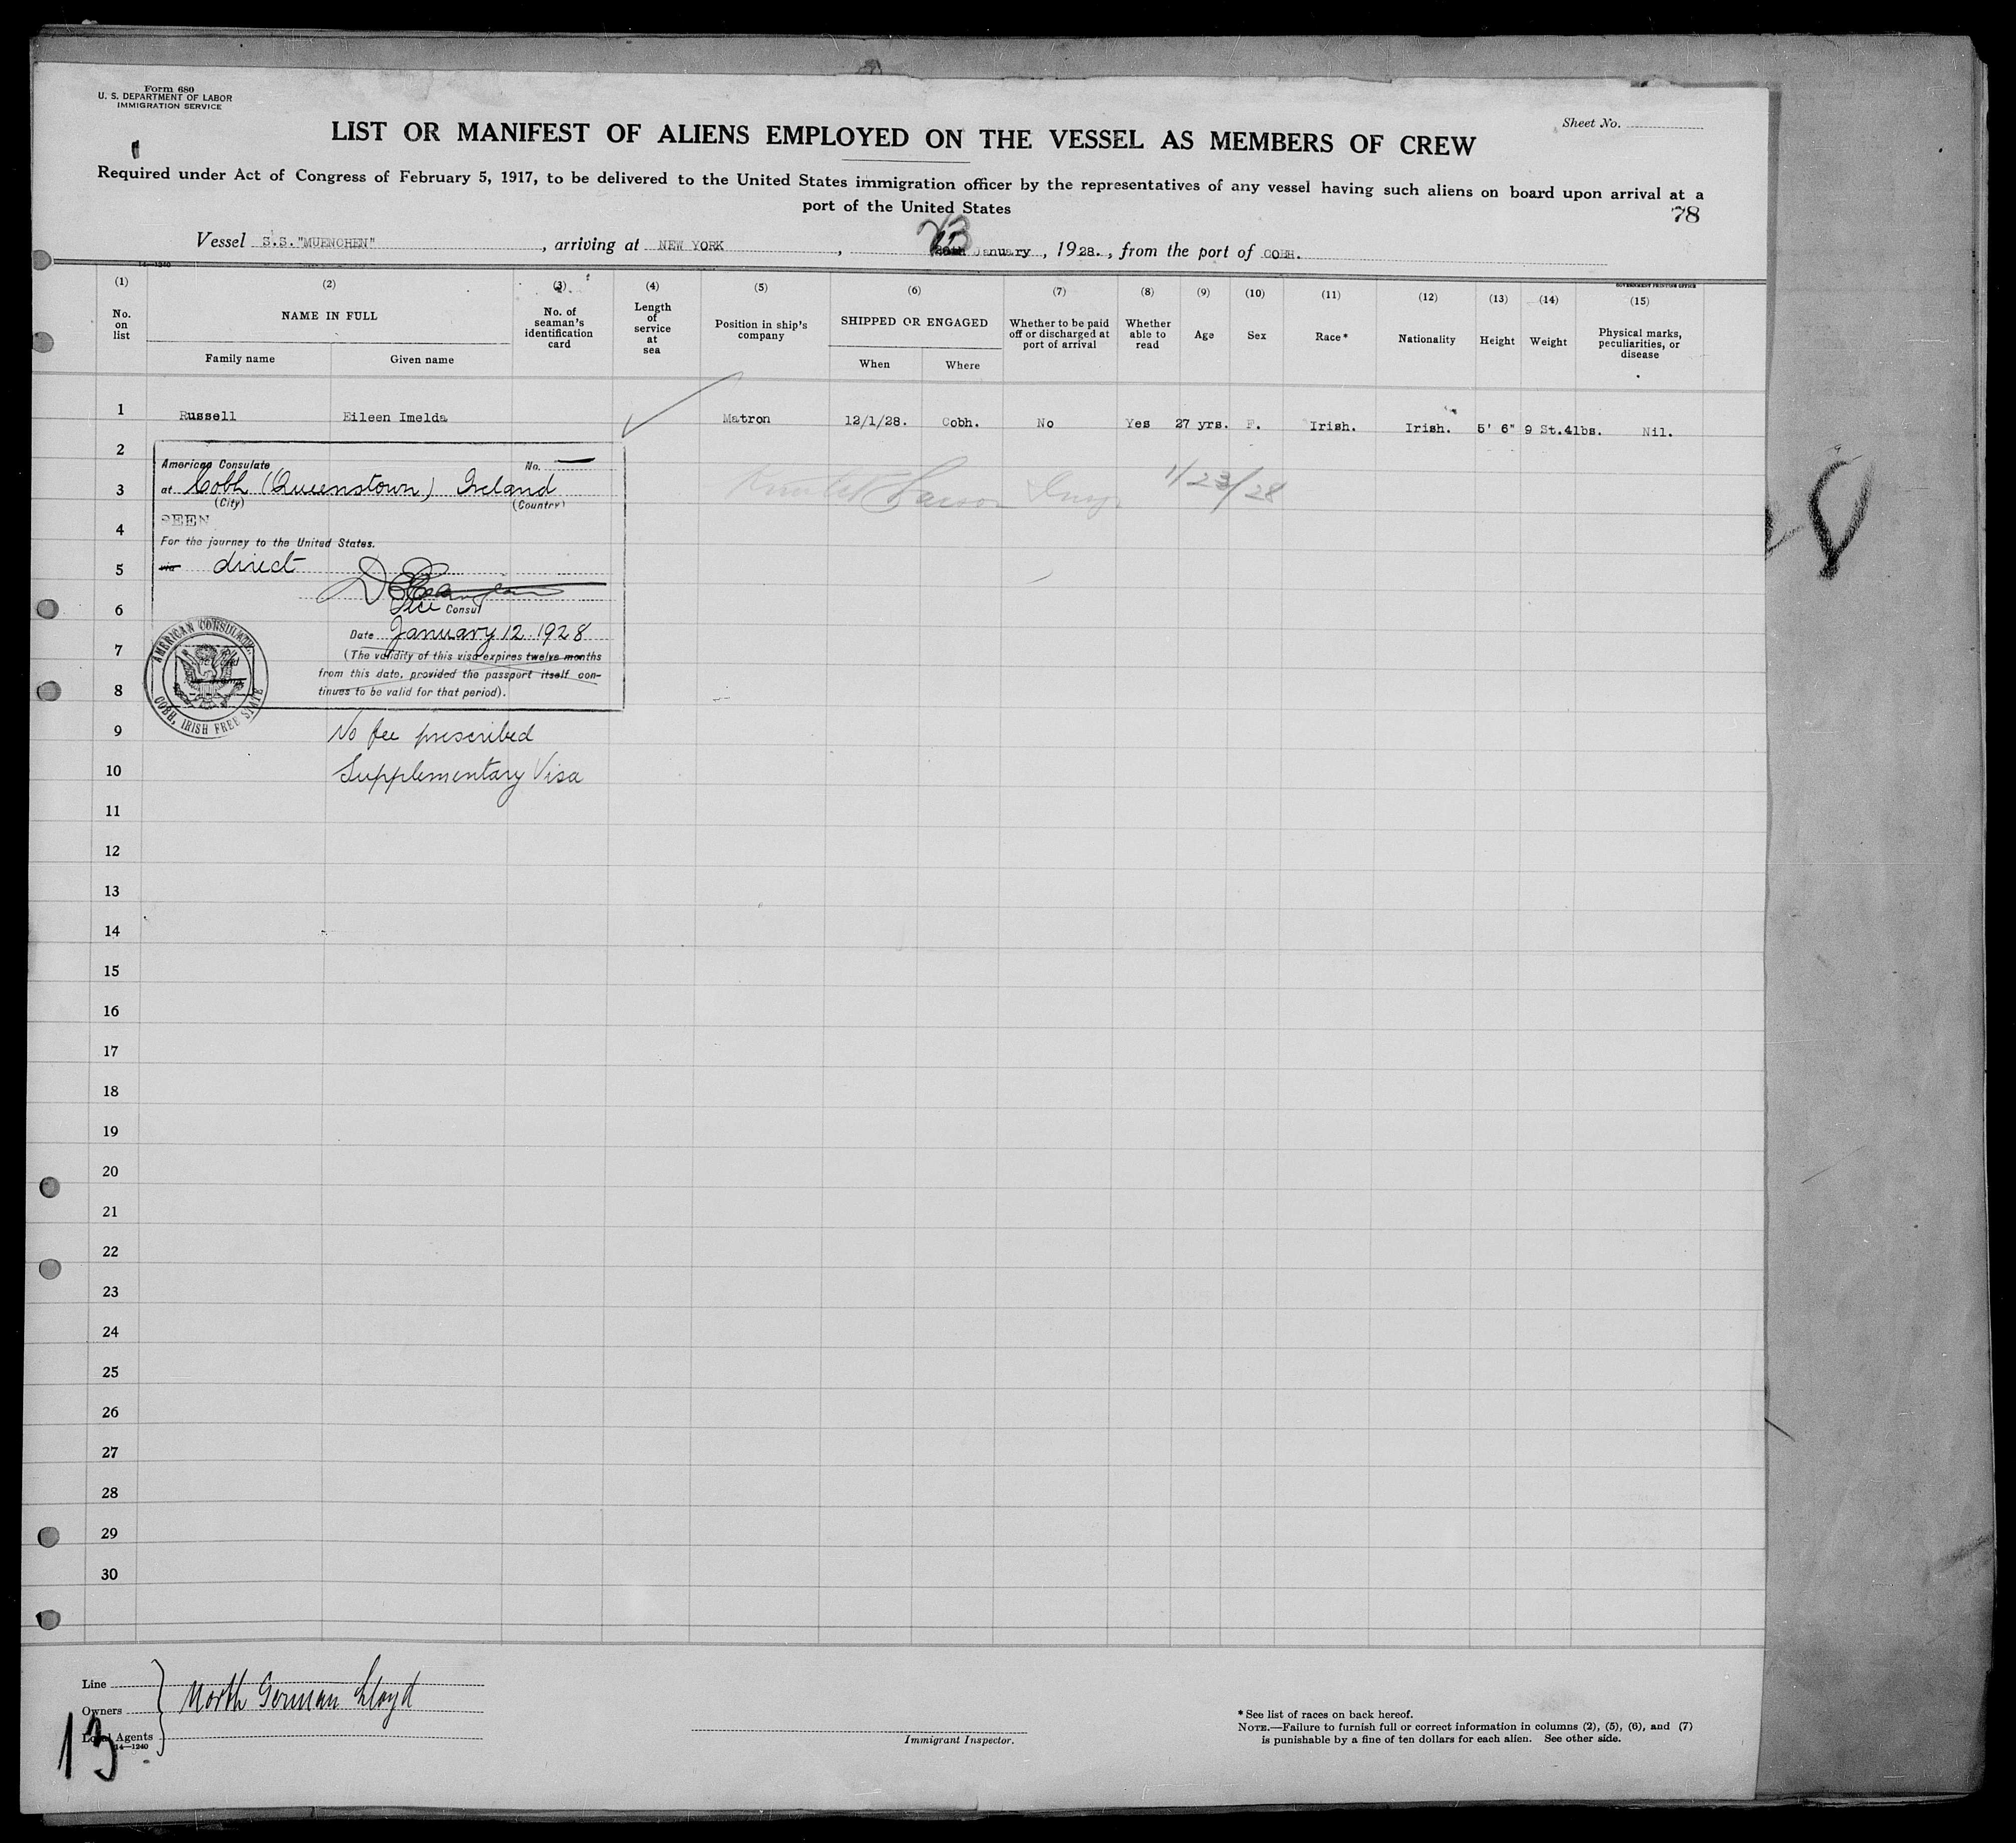 Form 680
U. S. DEPARTMENT OF LABOR
IMMIGRATION SERVICE
Sheet No.
LIST OR MANIFEST OF ALIENS EMPLOYED ON THE VESSEL AS MEMBERS OF CREW
Required under Act of Congress of February 5, 1917, to be delivered to the United States immigration officer by the representatives of any vessel having such aliens on board upon arrival at a
port of the United States
78
Vessel S.S."MUENCHEN", arriving at NEW YORK, 23 January, 1928., from the port of COBH.
14—1240
GOVERNMENT PRINTING OFFICE
(1) (2) (3) (4) (5) (6) (7) (8) (9) (10) (11) (12) (13) (14) (15)
No. on list
NAME IN FULL
Family name Given name
No. of seaman's identification card
Length of service at sea
Position in ship's company
SHIPPED OR ENGAGED
When Where
Whether to be paid off or discharged at port of arrival
Whether able to read
Age Sex Race* Nationality Height Weight
Physical marks, peculiarities, or disease
1 Russell Eileen Imelda Matron 12/1/28. Cobh. No Yes 27 yrs. F. Irish. Irish. 5' 6" 9 St.4lbs. Nil.
2
American Consulate No. —
3
at Cobh (Queenstown) Ireland
(City) (Country)
1/23/28
4
SEEN
For the journey to the United States.
5
via direct
6
Vice Consul
Date January 12 1928
7
(The validity of this visa expires twelve months
from this date, provided the passport itself con-
8
tinues to be valid for that period).
AMERICAN CONSULATE
COBH, IRISH FREE STATE
9
No fee prescribed
10
Supplementary Visa
11
12
13
14
15
16
17
18
19
20
21
22
23
24
25
26
27
28
29
30
Line
Owners
Local Agents
North German Lloyd
14—1240
13
Immigrant Inspector.
* See list of races on back hereof.
NOTE.—Failure to furnish full or correct information in columns (2), (5), (6), and (7)
is punishable by a fine of ten dollars for each alien. See other side.